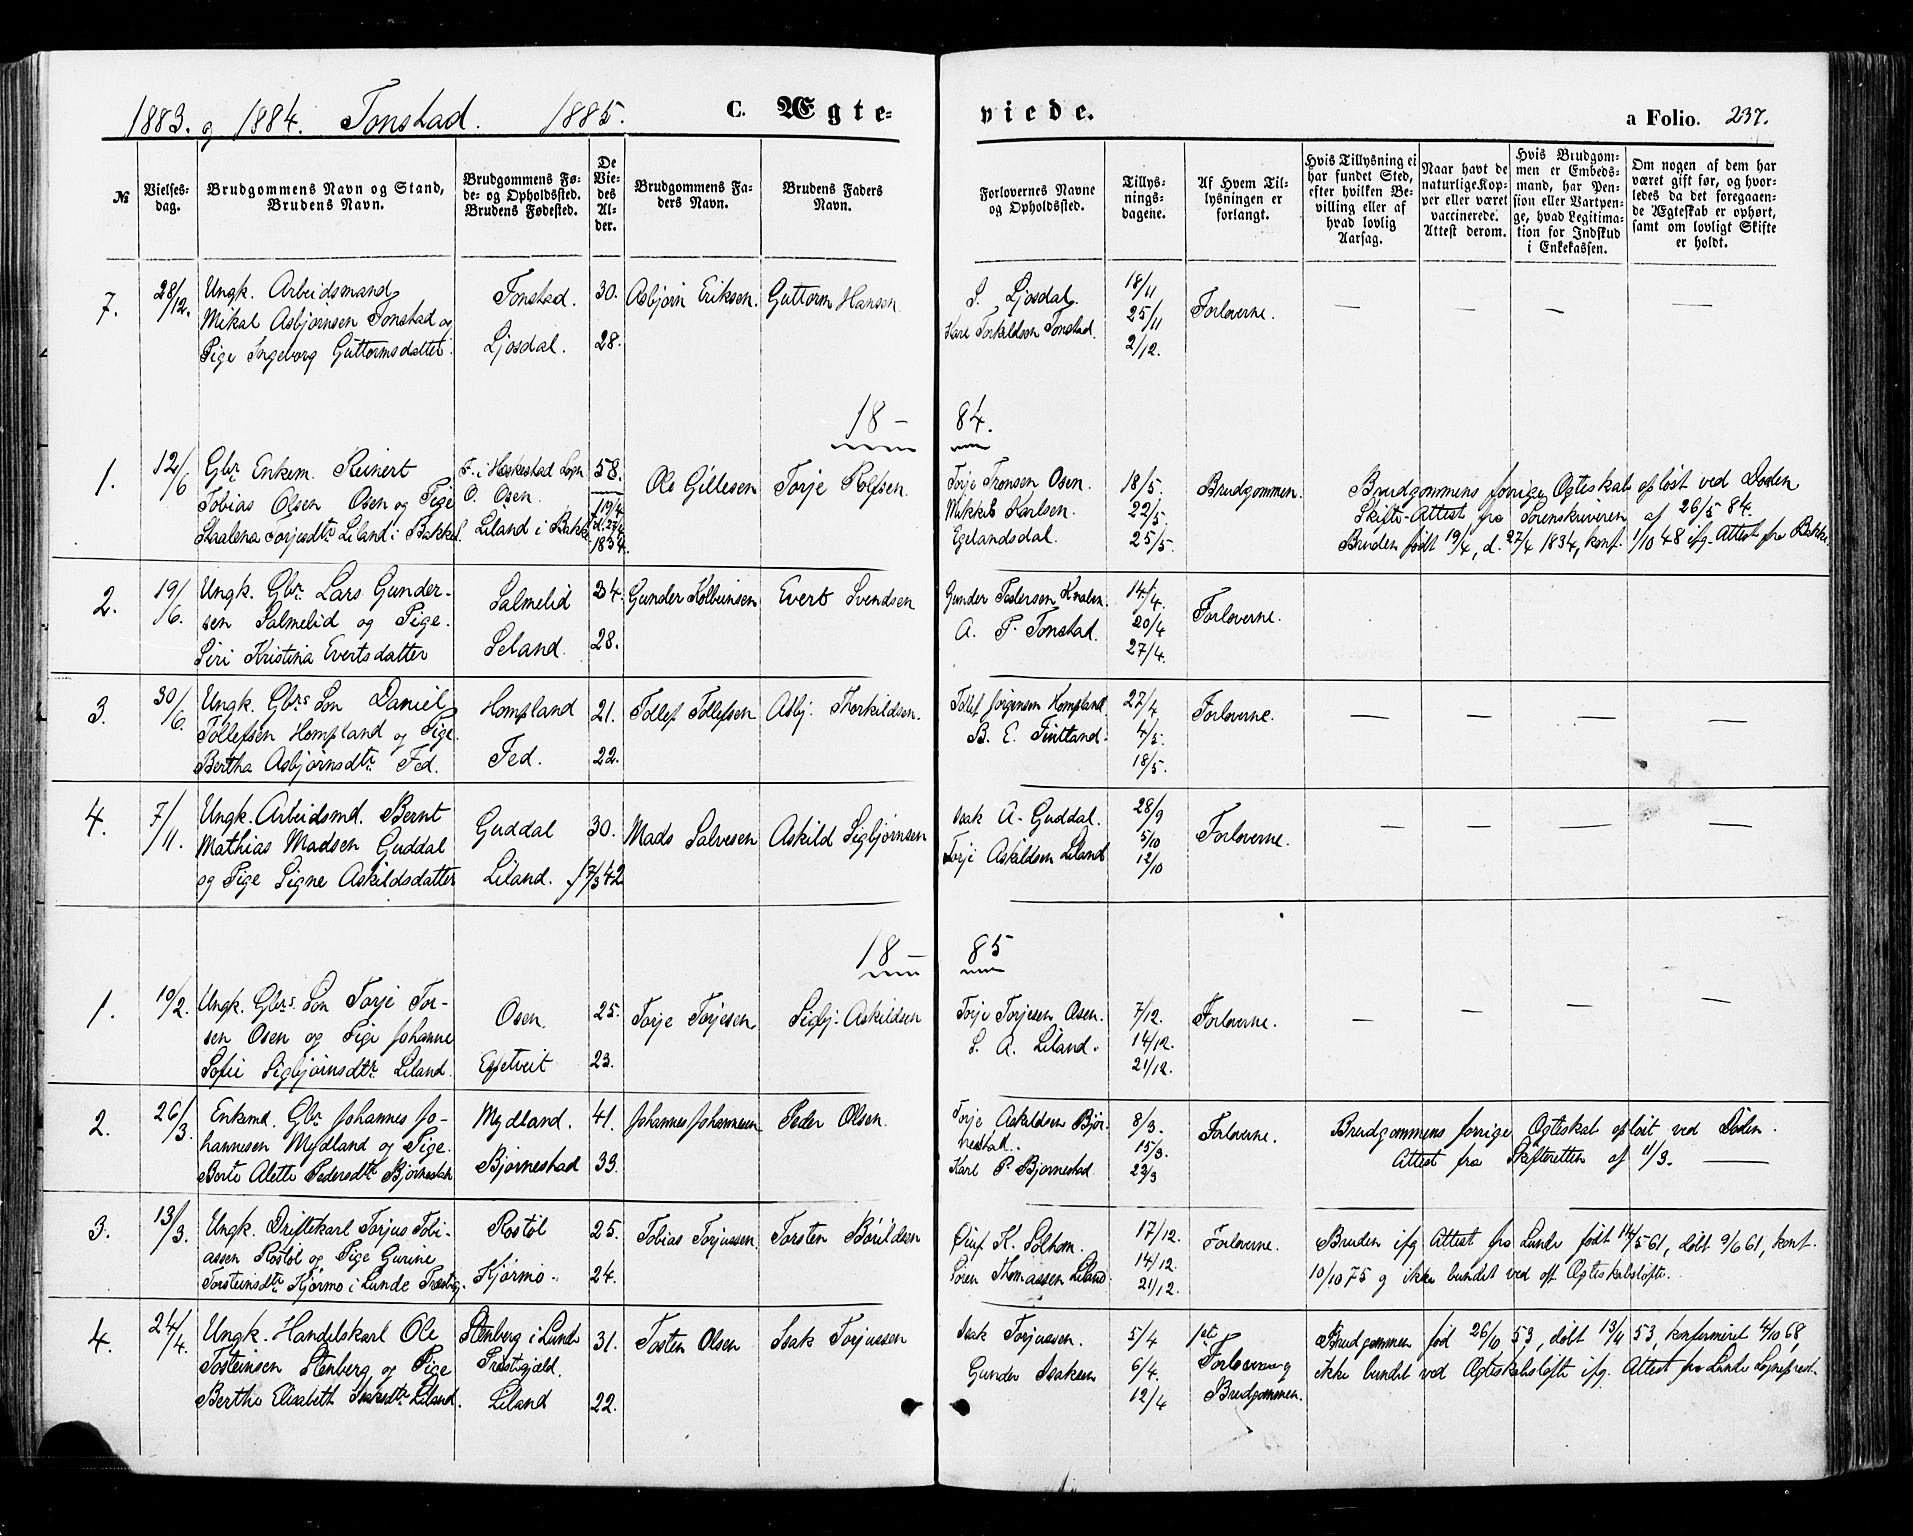 1883. og 1884. Tonstad. 1885. C. Ægte-
viede. a Folio. 237.
№
Vielses-
dag.
Brudgommens Navn og Stand,
Brudens Navn.
Brudgommens Fø-
de- og Opholdssted.
Brudens Fødested.
De
Vie-
des
Al-
der.
Brudgommens Fa-
ders Navn.
Brudens Faders
Navn.
Forlovernes Navne
og Opholdssted.
Tillys-
nings-
dagene.
Af Hvem Til-
lysningen er
forlangt.
Hvis Tillysning ei
har fundet Sted,
efter hvilken Be-
villing eller af
hvad lovlig
Aarsag.
Naar havt de
naturlige Kop-
per eller været
vaccinerede.
Attest derom.
Hvis Brudgom-
men er Embeds-
mand, har Pen-
sion eller Vartpen-
ge, hvad Legitima-
tion for Indskud
i Enkekassen.
Om nogen af dem har
været gift før, og hvor-
ledes da det foregaaen-
de Ægteskab er ophørt,
samt om lovligt Skifte
er holdt.
7. 28/12. Ungk. Arbeidsmand
Mikal Asbjørnsen Tonstad og
Pige Ingeborg Guttormsdatter.
Tonstad. 30. Asbjørn Eriksen. Guttorm Hansen.
Ljosdal. 28.
S. Ljosdal. 18/11
Kare Torkildsen Tonstad. 25/11
2/12.
Forloverne. — — — —
18 — 84.
1. 12/6 Gbr. Enkem. Reinert
Tobias Olsen Osen og Pige
Staalena Torjesdtr. Liland i Bakke.
F. i Heskestad Sogn
O. Osen.
Liland i Bakke
58.
19/4
d. 27/4
1834.
Ole Gillesen Torje Rolfsen.
Torje Tronsen Osen.
Mikkel Karlsen.
Egelandsdal.
18/5.
22/5.
25/5.
Brudgommen.
Brudgommens forrige Ægteskab opløst ved Døden
Skifte-Attest fra Sorenskriveren af 26/5 84.
Bruden født 19/4, d. 27/4 1834, konf. 1/10 48 ifg. Attest fra Bakke.
2. 19/6. Ungk. Gbr. Lars Gunder-
sen Salmelid og Pige.
Siri Kristina Evertsdatter
Salmelid 34. Gunder Kolbeinsen Evert Svendsen
Seland. 28.
Gunder Pedersen Kvalen. 14/4.
A. P. Tonstad. 20/4
27/4.
Forloverne.
3. 30/6 Ungk. Gbrs. Søn Daniel
Tollefsen Hompland og Pige.
Bertha Asbjørnsdtr. Fed.
Hompland 21. Tollef Tollefsen Asbj. Thorkildsen.
Fed. 22.
Tollef Jørgensen Hompland 27/4
B. E. Fintland. 4/5.
18/5.
Forloverne. — — — —
4. 7/11. Ungk. Arbeidsmd. Bernt
Mathias Madsen Guddal
og Pige Signe Askildsdatter
Guddal 30. Mads Salvesen Askild Sigbjørnsen
Liland. f. 7/3 42
Isak A. Guddal. 28/9
Torje Askildsen Liland 5/10
12/10
Forloverne. — — — —
18 — 85
1. 19/2. Ungk. Gbrs. Søn Torje Tor-
sen Osen og Pige Johanne
Sofie Sigbjørnsdtr. Liland.
Osen. 25. Torje Torjesen Sigbj. Askildsen
Egetveit 23.
Torje Torjesen Osen. 7/12.
S. A. Liland. 14/12.
21/12.
Forloverne. — — — —
2. 26/3. Enkemd. Gbr. Johannes Jo-
hannesen Mydland og Pige.
Berte Alette Pedersdtr. Bjørnestad
Mydland. 41. Johannes Johannesen Peder Olsen.
Bjørnestad 33.
Torje Askildsen Bjør-
nestad.
Karl P. Bjørnestad
8/3.
15/3.
22/3
Forloverne.
Brudgommens forrige Ægteskab opløst ved Døden.
Attest fra Skifteretten af 11/3. —
3. 13/3. Ungk. Driftekarl Torjus Tobi-
assen Røstøl og Pige Gurine
Torsteinsdtr. Kjørmo i Lunde Præstgj.
Røstøl 25. Tobias Torjussen Torsten Bårildsen
Kjørmo. 24.
Oluf K. Solhom. 17/12.
Søren Thomassen Liland. 14/12.
21/12.
Forloverne.
Bruden ifg Attest fra Lunde født 14/5 61, døbt 9/6 61, konf.
10/10 75 og ikke bundet ved oft. Ægteskabsløfte.
4. 24/4. Ungk. Handelskarl Ole
Tosteinsen Stenberg og Pige
Berthe Elisabeth Isaksdtr. Liland.
Stenberg i Lunde
Præstegjæld.
Liland
31. Tosten Olsen Isak Torjussen
22.
Isak Torjussen. 5/4
Gunder Isaksen 6/4.
12/4
Forloverne og
Brudgommen.
Brudgommen fød 26/10 53, døbt 13/11 53, konfirmeret 4/10 68,
ikke bundet ved Ægteskabsløfte ifg. Attest fra Lunde Sognepræst.